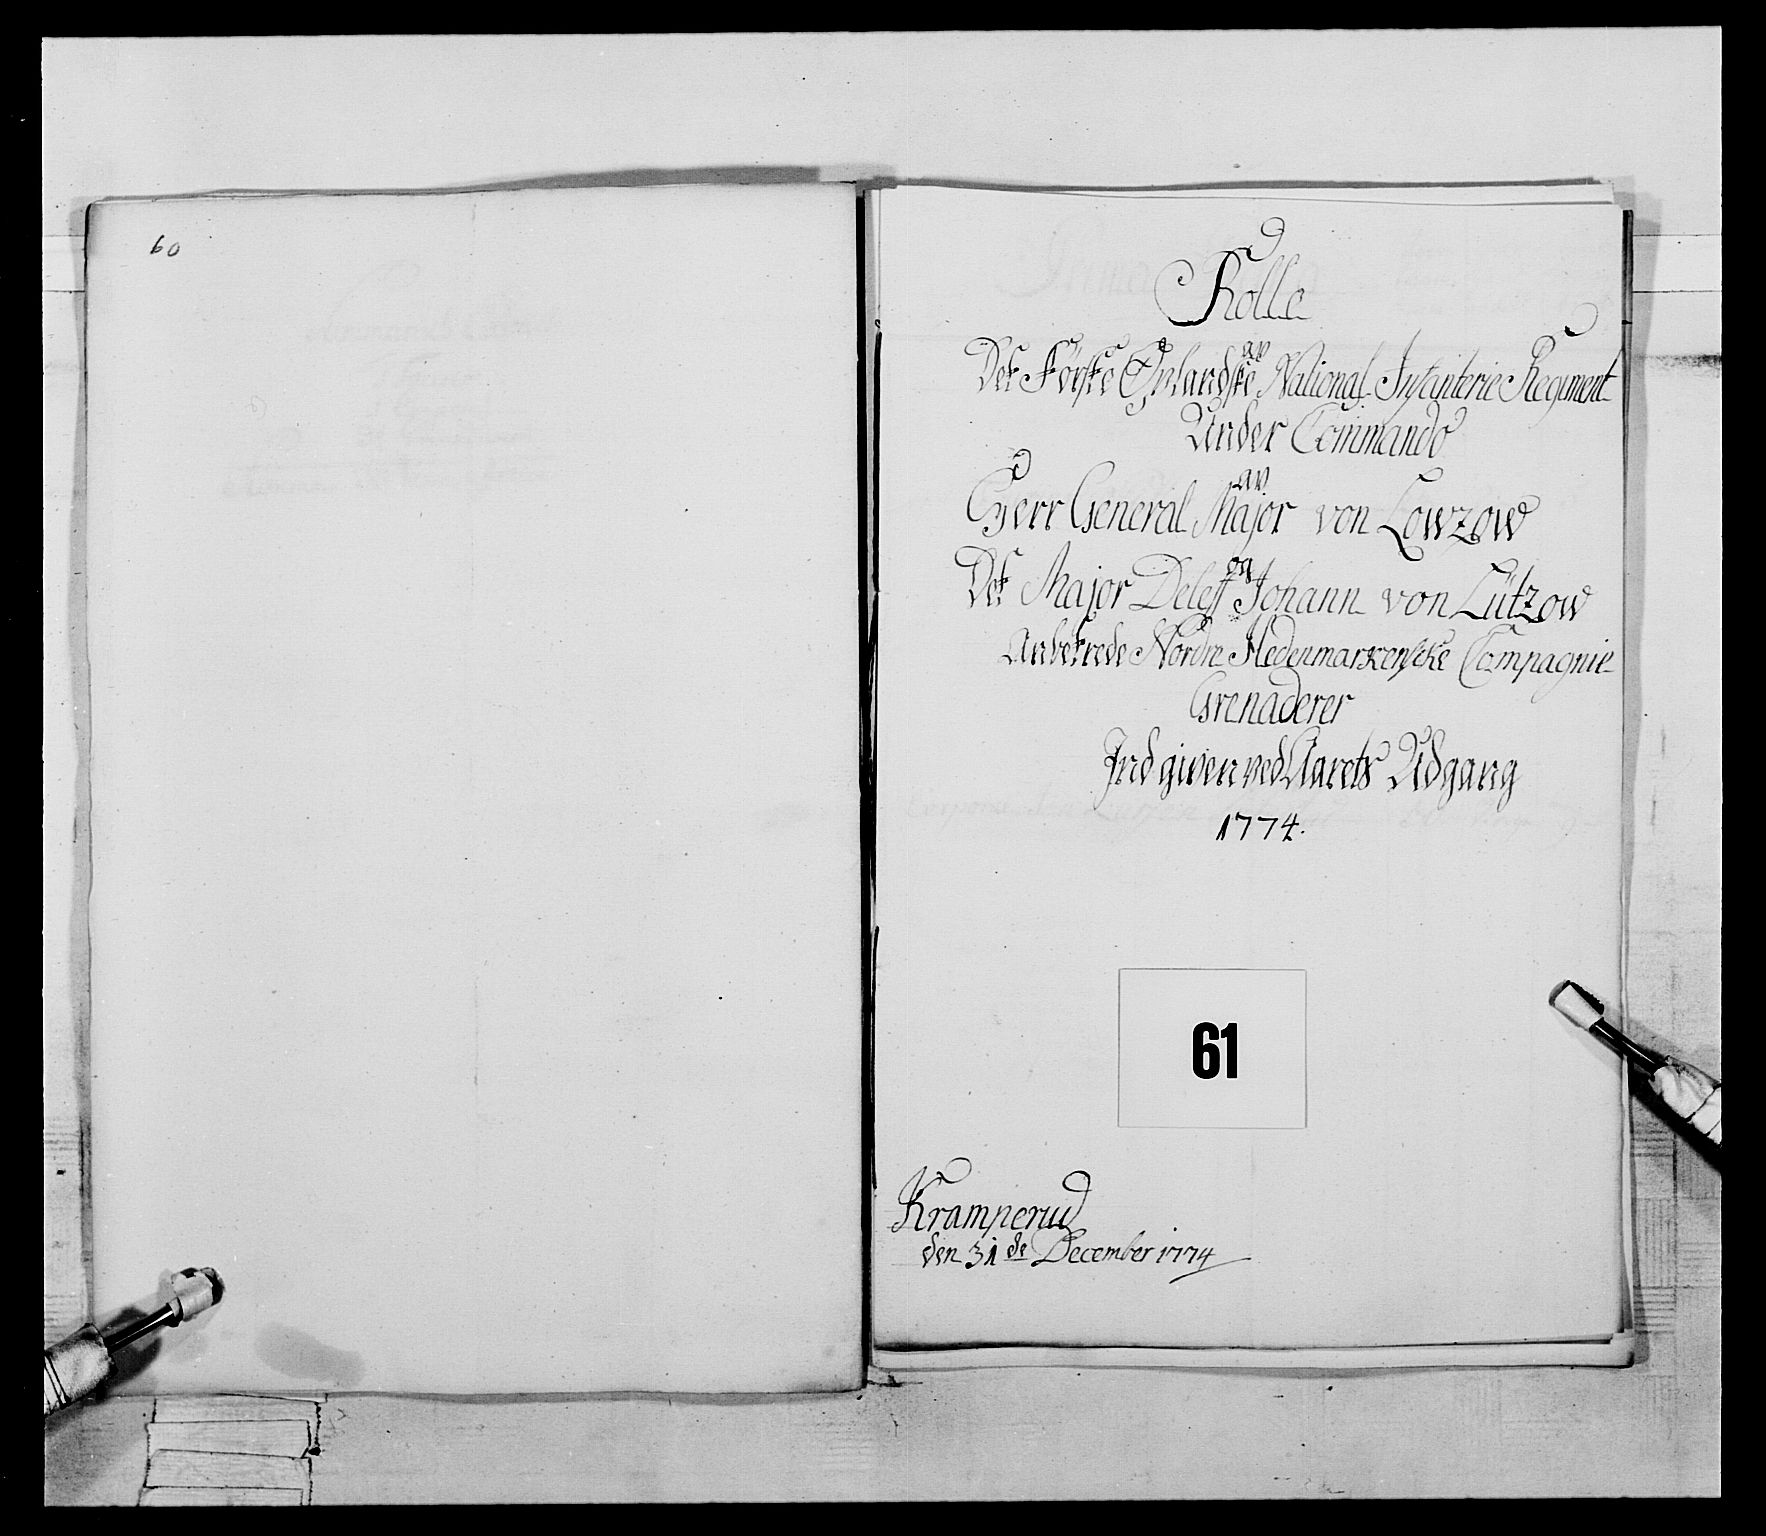 60
Rolle
av
Det Første Oplandske National Infanterie Regiment
Under Commando
av
Herr General Major von Lowzow
og
Det Major Deleff Johann von Lützow
Anbetrede Nordre Hedenmarkenske Compagnie
Grenaderer
Ind given ved Aarets Udgang
1774.
61
Kramperud
den 31de December 1774